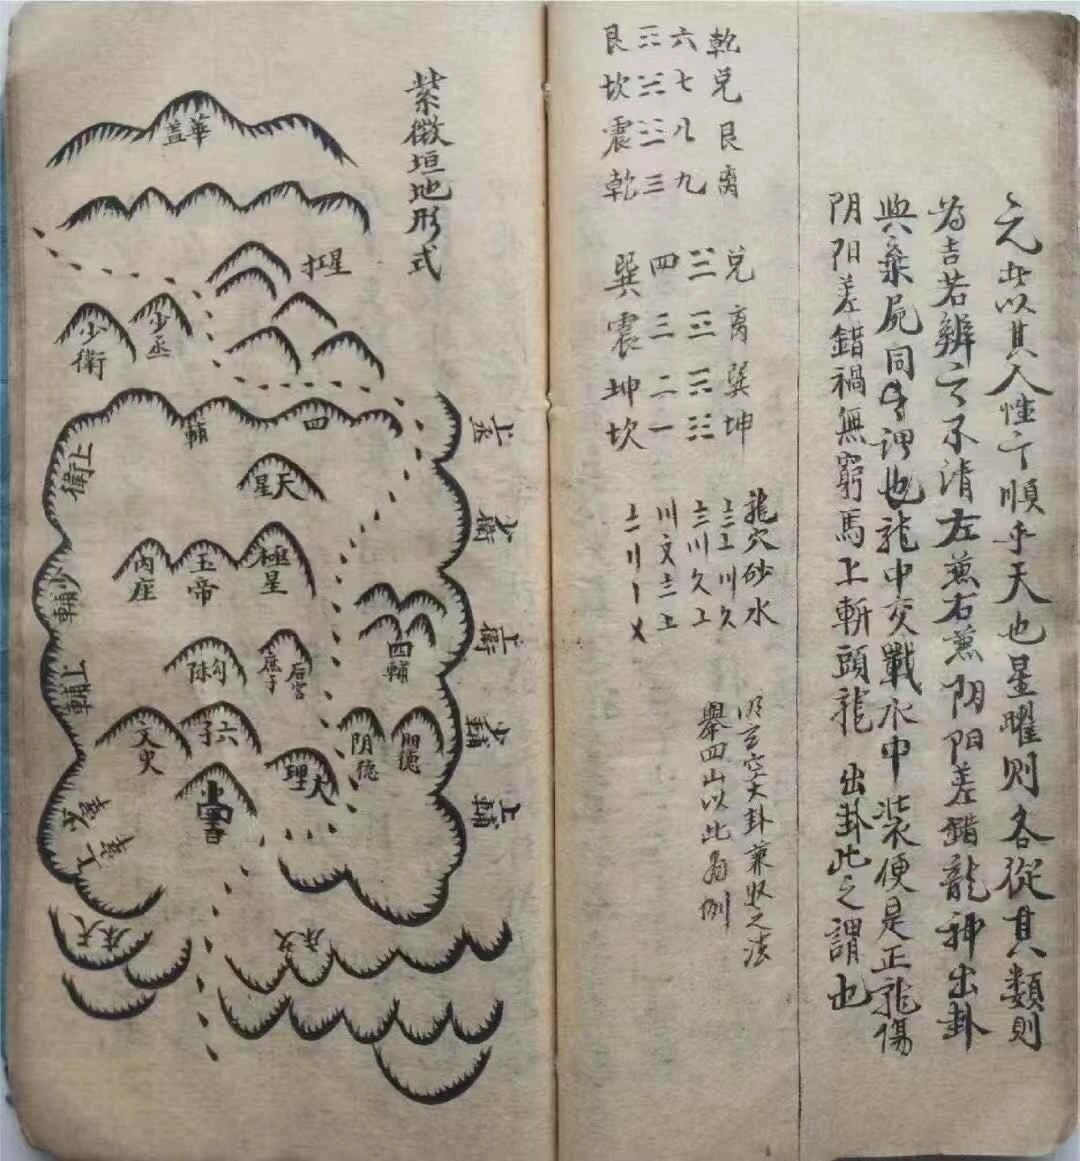 元此以其人性亦順乎天也星曜則各從其類則
為吉若辨之不清左兼右兼阴阳差錯龍神出卦
與棄屍同之謂也龍中交戰水中裝便是正龍傷
阴阳差錯禍無窮馬上斬頭龍出卦此之謂也
乾兌艮離
六七八九
艮坎震乾
兌離巽坤
四三二一
巽震坤坎
龍穴砂水
空大卦兼收之法
舉四山以此為例
紫微垣地形式
華蓋
扛星
少丞
少衛
上丞
四輔
上衛
少衛
天星
極星
玉帝
内座
上衛
少輔
四輔
后宮
庶子
勾陳
上輔
少輔
門德
阴德
大理
六子
文史
上輔
尚書
少宰
上宰
天床
天床